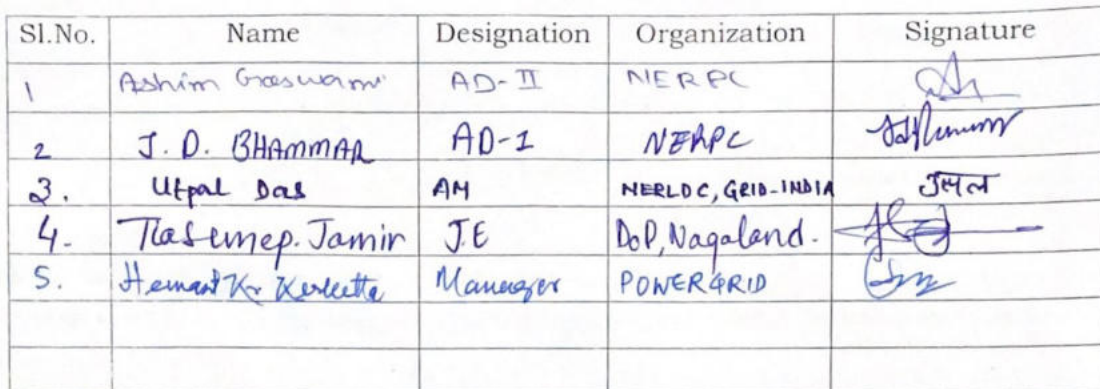 Sl.No. Name Designation Organization Signature
1 Ashim Goswami AD-II NERPC
2 J. D. BHAMMAR AD-1 NERPC
3. Utpal Das AM NERLDC, GRID-INDIA उत्पल
4. Jamir J.E DoP, Nagaland.
5. Hemant Kr Kerketta Manager POWERGRID